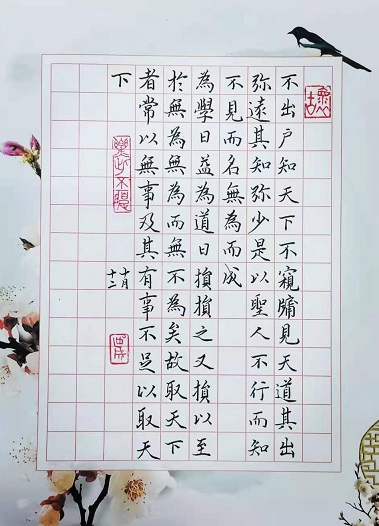 不出户知天下不窺牖見天道其出
弥遠其知弥少是以聖人不行而知
不見而名無為而成
為學日益為道日損損之又損以至
於無為無為而無不為矣故取天下
者常以無事及其有事不足以取天
下
十月
十二